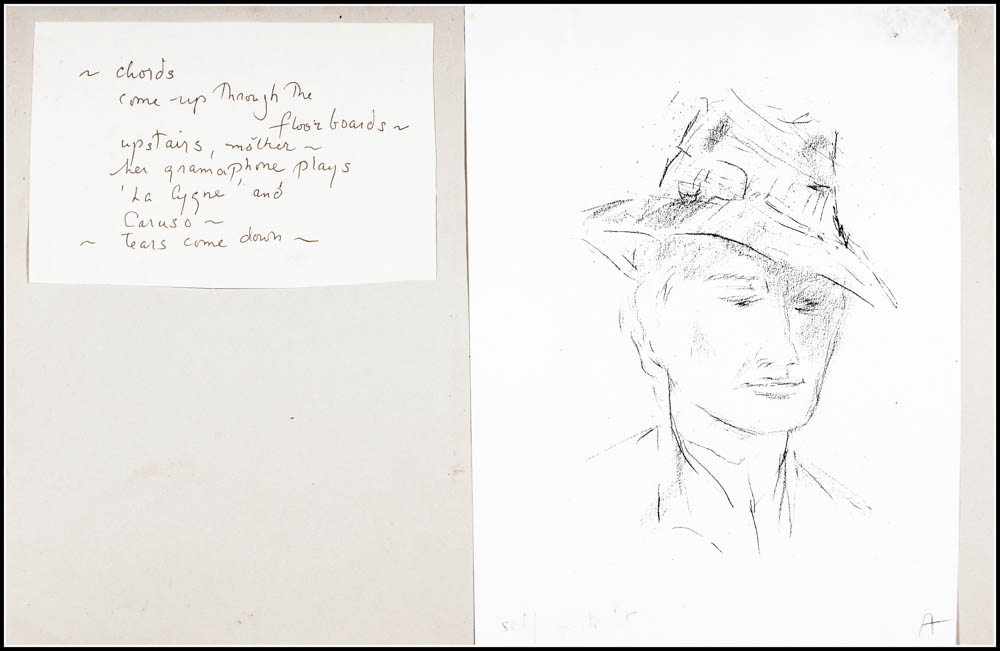 ~ chords
come-up Through The
floor boards ~
upstairs, mother ~
her gramaphone plays
'La Cygne' and
Caruso ~
~ Tears come down ~
A